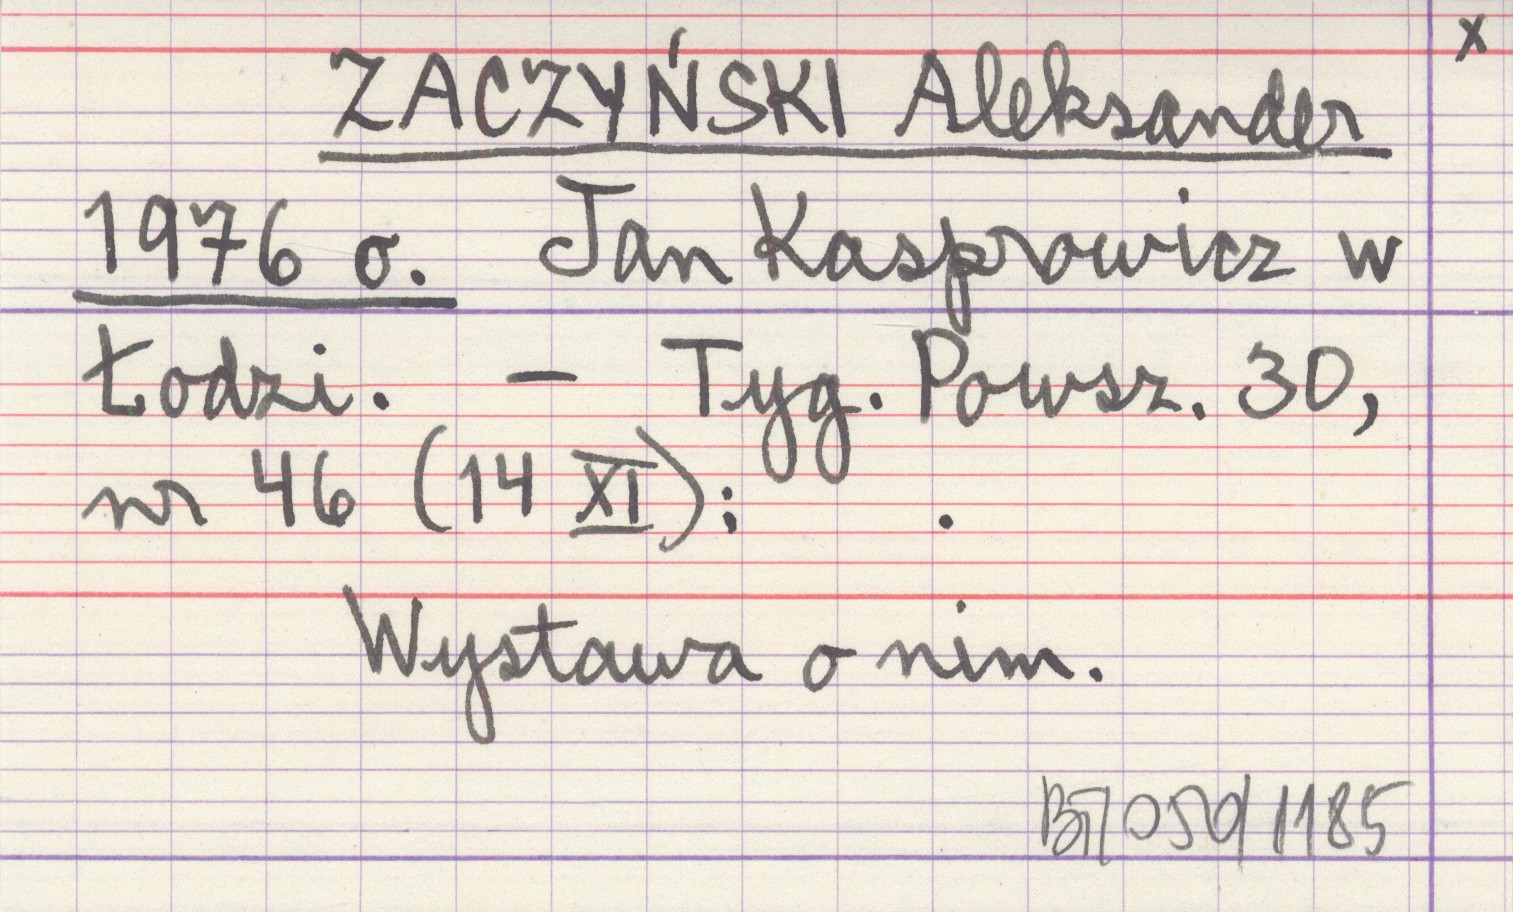 x
ZACZYŃSKI Aleksander
1976 o. Jan Kasprowicz w
Łodzi. – Tyg. Powsz. 30,
nr 46 (14 XI): .
Wystawa o nim.
1185